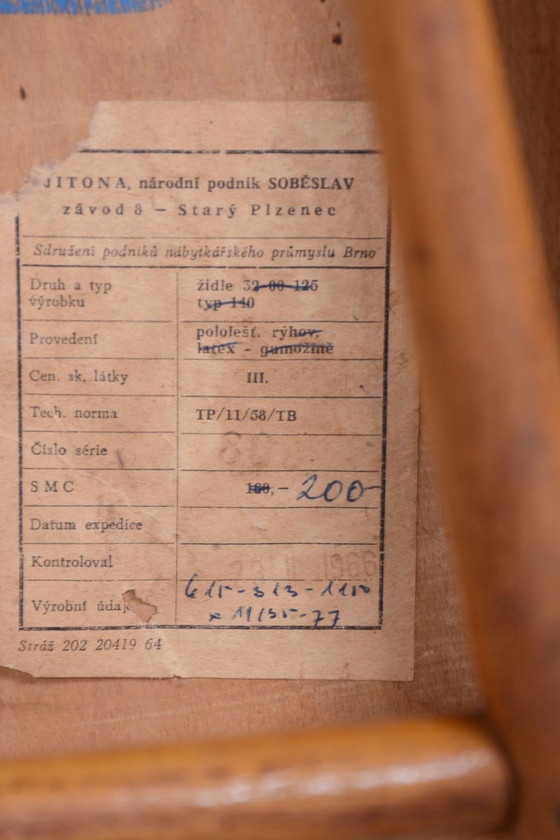 JITONA, národní podnik SOBĚSLAV
závod 8 — Starý Plzenec
Sdružení podniků nábytkářského průmyslu Brno
Druh a typ výrobku židle 32-00-125 typ 140
Provedení pololešt. rýhov. latex - gumožíně
Cen. sk. látky III.
Tech. norma TP/11/58/TB
Číslo série
SMC 160,— 200-
Datum expedice
Kontroloval
Výrobní údaj 615-313-1150
Stráž 202 20419 64